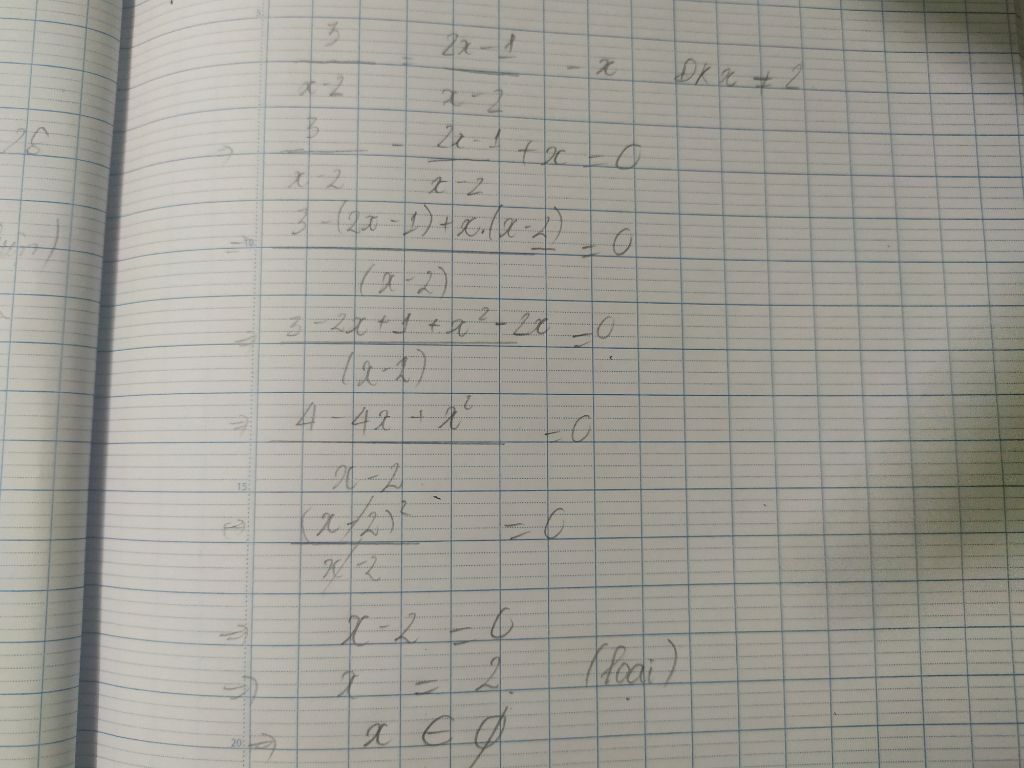 3/(x-2) = (2x-1)/(x-2) - x ĐK x ≠ 2
=> 3/(x-2) - (2x-1)/(x-2) + x = 0
=> (3-(2x-1)+x.(x-2))/(x-2) = 0
=> (3-2x+1+x²-2x)/(x-2) = 0
=> (4-4x+x²)/(x-2) = 0
=> (x-2)²/(x-2) = 0
=> x-2 = 0
=> x = 2 (loại)
=> x ∈ ∅
26
15
20